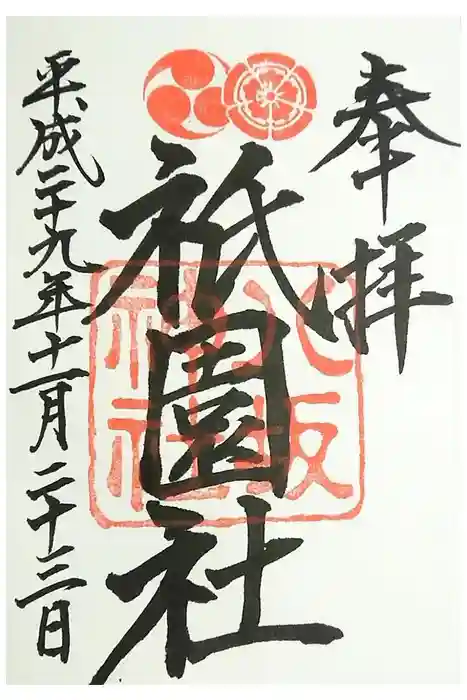 奉拝
祇園社
八坂
神社
平成二十九年十一月二十三日